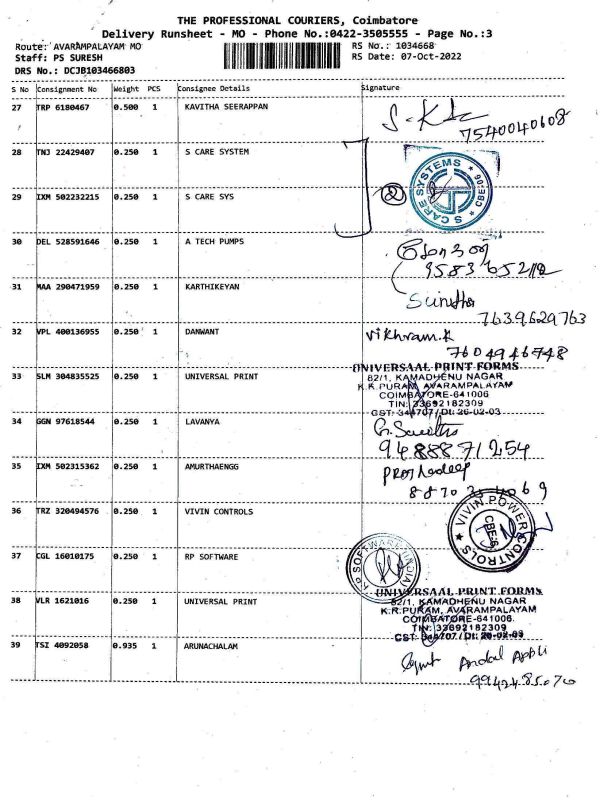 THE PROFESSIONAL COURIERS, Coimbatore
Delivery Runsheet - MO - Phone No.:0422-3505555 - Page No.:3
Route: AVARAMPALAYAM MO RS No.: 1034668
Staff: PS SURESH RS Date: 07-Oct-2022
DRS No.: DCJB103466803
S No Consignment No Weight PCS Consignee Details Signature
27 TRP 6180467 0.500 1 KAVITHA SEERAPPAN
7540040608
28 TNJ 22429407 0.250 1 S CARE SYSTEM
29 IXM 502232215 0.250 1 S CARE SYS 2 S CARE SYSTEMS
30 DEL 528591646 0.250 1 A TECH PUMPS
31 MAA 290471959 0.250 1 KARTHIKEYAN
7639629763
32 VPL 400136955 0.250 1 DANWANT Vikhram.K
7604946748
33 SLM 304835525 0.250 1 UNIVERSAL PRINT UNIVERSAAL PRINT FORMS
82/1, KAMADHENU NAGAR
K.R.PURAM, AVARAMPALAYAM
COIMBATORE-641006
TIN: 33692182309
CST: 344707/Dt: 26-02-03
34 GGN 97618544 0.250 1 LAVANYA
9488871254
35 IXM 502315362 0.250 1 AMURTHAENGG
36 TRZ 320494576 0.250 1 VIVIN CONTROLS VIVIN POWER CONTROLS CBE-6
37 CGL 16010175 0.250 1 RP SOFTWARE R.P SOFTWARE (INDIA)
38 VLR 1621016 0.250 1 UNIVERSAL PRINT UNIVERSAAL PRINT FORMS
82/1, KAMADHENU NAGAR
K.R.PURAM, AVARAMPALAYAM
COIMBATORE-641006
TIN: 33692182309
CST: 344707/Dt: 26-02-03
39 TSI 4092058 0.935 1 ARUNACHALAM
9942485070